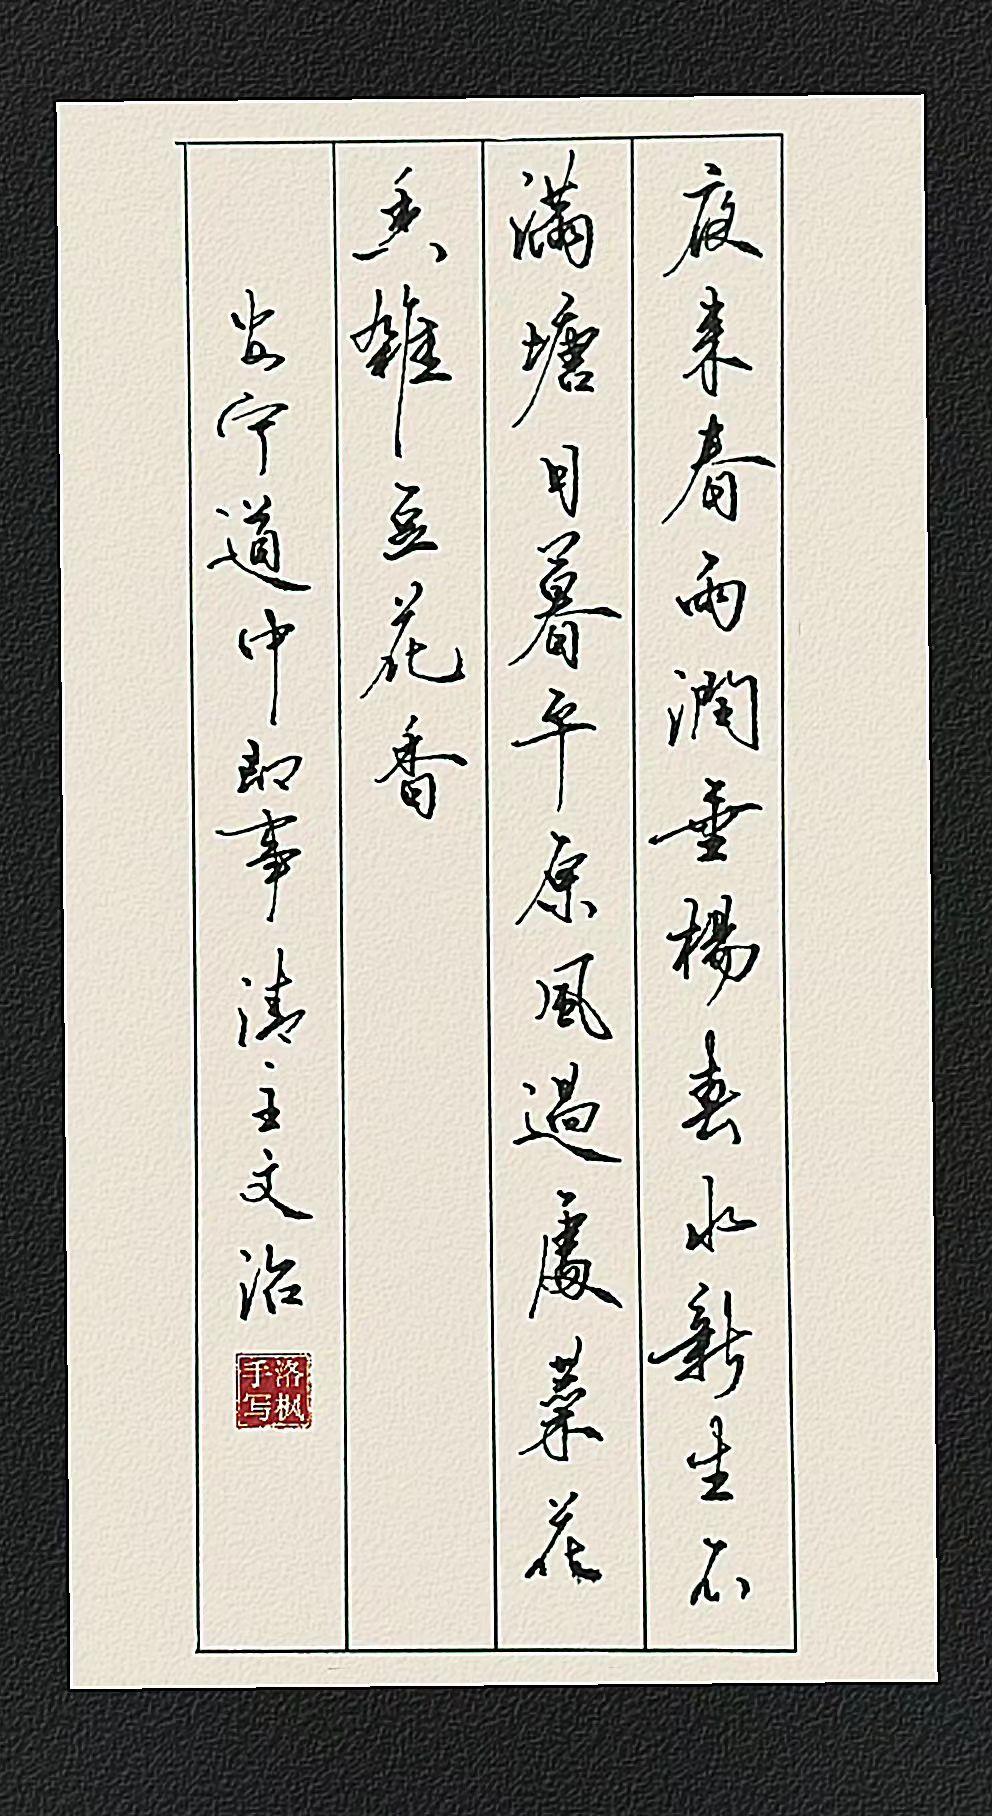 夜来春雨潤垂楊春水新生不
滿塘日暮平原風過處菜花
香雜豆花香
安宁道中即事清王文治
洛枫
手写